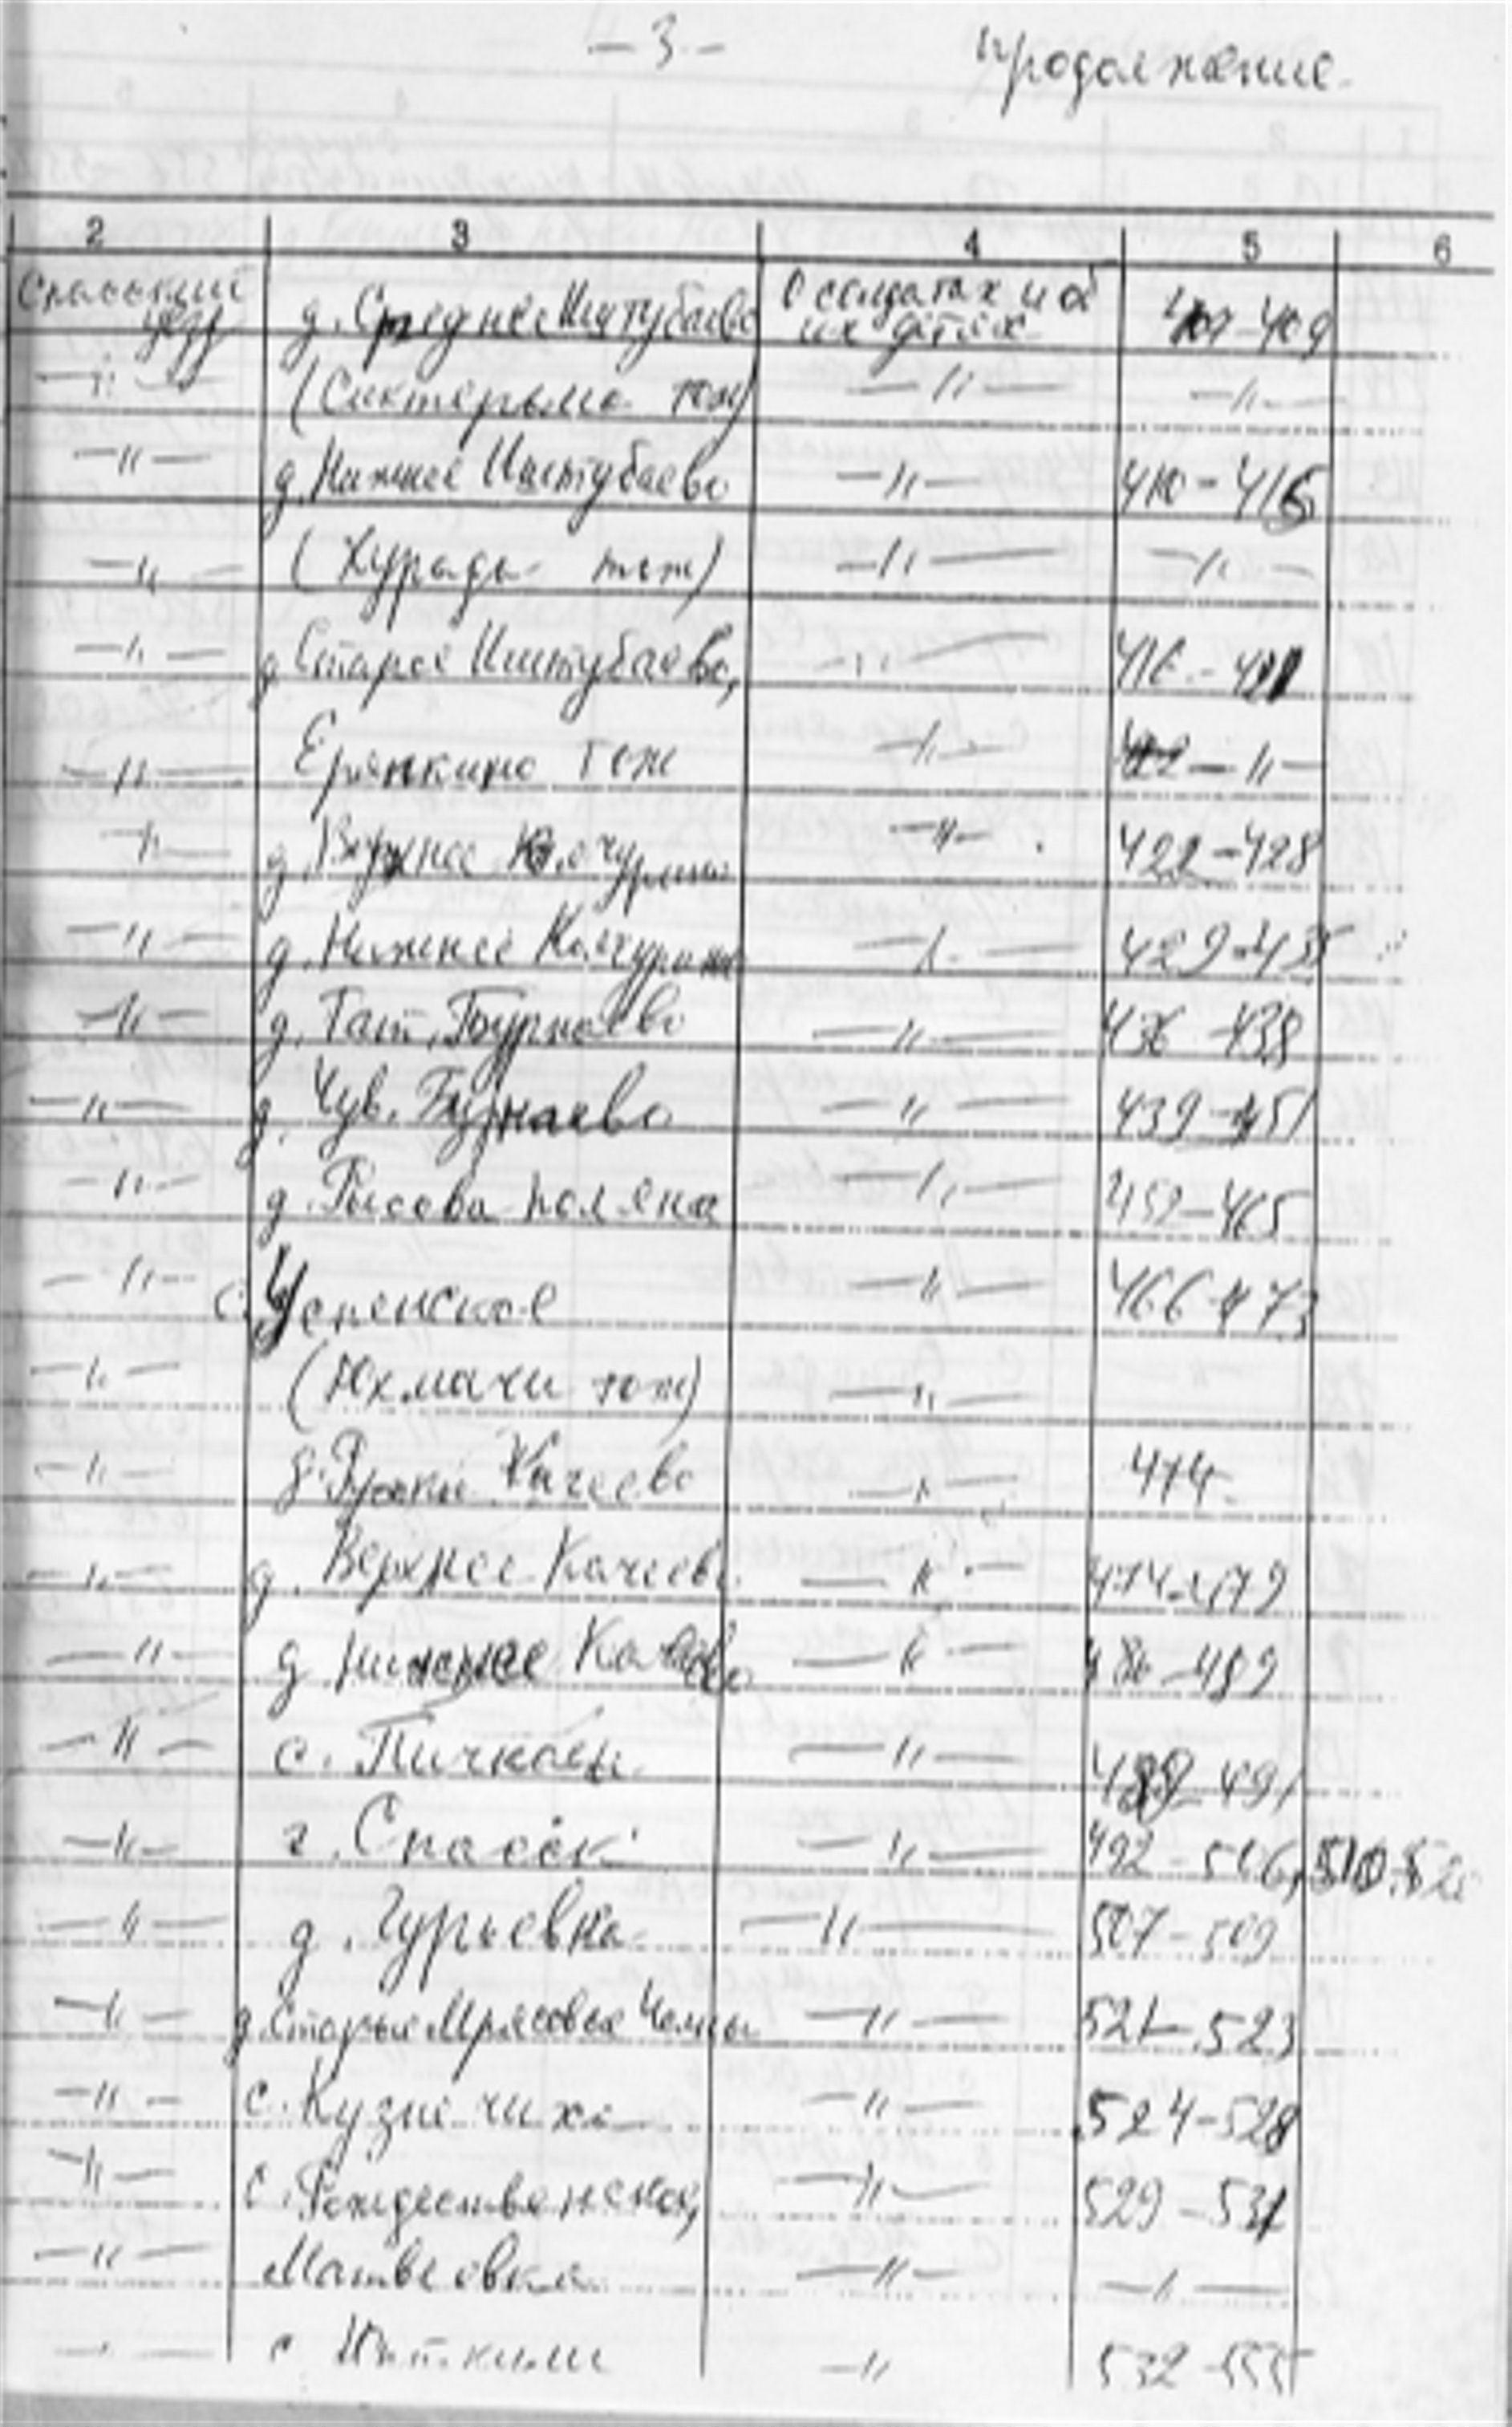 – 3 –
продолжение
2 3 4 5 6
Спасский д. Среднее Иштубаево О солдатах и об 409
уезд их детях
–"– (Сиктерьма тож) –"– –"–
–"– д. Нижнее Иштубаево –"– 410 – 415
–"– (Хурада тож) –"– –"–
–"– д Старое Иштубаево, –"– 416 – 421
–"– Ерянкино тож –"– –"–
–"– д. Верхнее Колчурино –"– 422 – 428
–"– д. Нижнее Колчурино –"– 429 – 435
–"– д. Тат. Бурнаево –"– 436 – 438
–"– д. Чув. Бурнаево –"– 439 – 451
–"– д. Рысова поляна –"– 452 – 465
–"– с. Успенское –"– 466 – 473
–"– (Юхмачи тож) –"–
–"– д. Русски Качеево –"– 474
–"– д. Верхнее Качеево –"– 474 – 479
–"– д Нижнее Качеево –"– 480 – 489
–"– с. Пичкасы –"– 489 – 491
–"– г. Спасск –"– 492 – 506, 510-520
–"– д. Гурьевка –"– 507 – 509
–"– д. Старые Мрясовы Челны –"– 521 – 523
–"– с. Кузнечиха –"– 524 – 528
–"– с. Рождественское, –"– 529 – 531
–"– Матвеовка –"– –"–
–"– с –"– 532 – 535